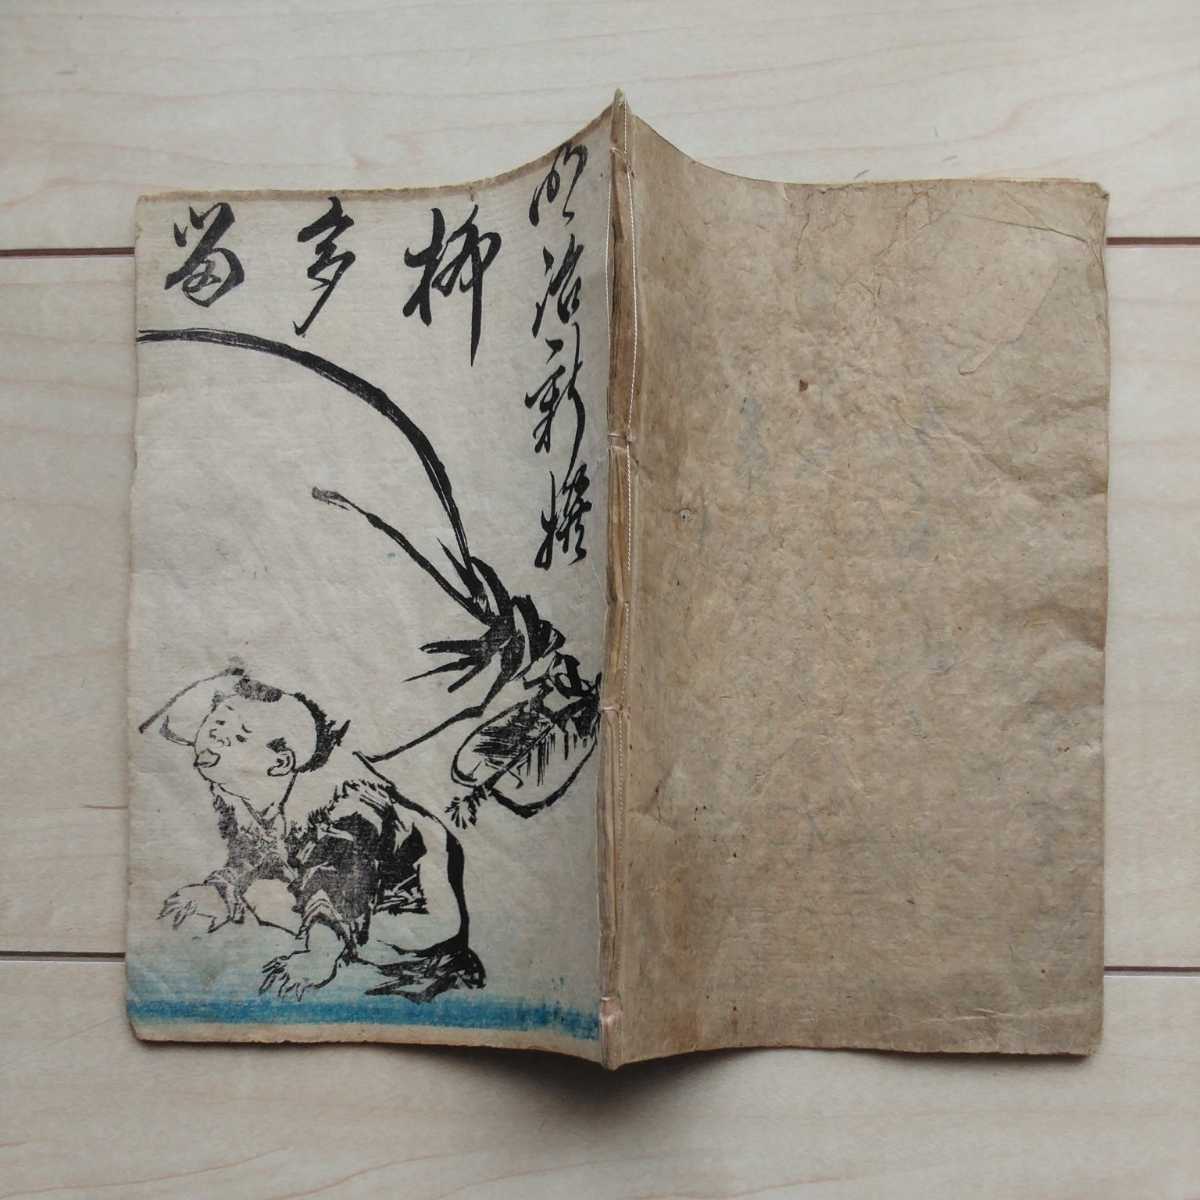 明治新撰
柳多留